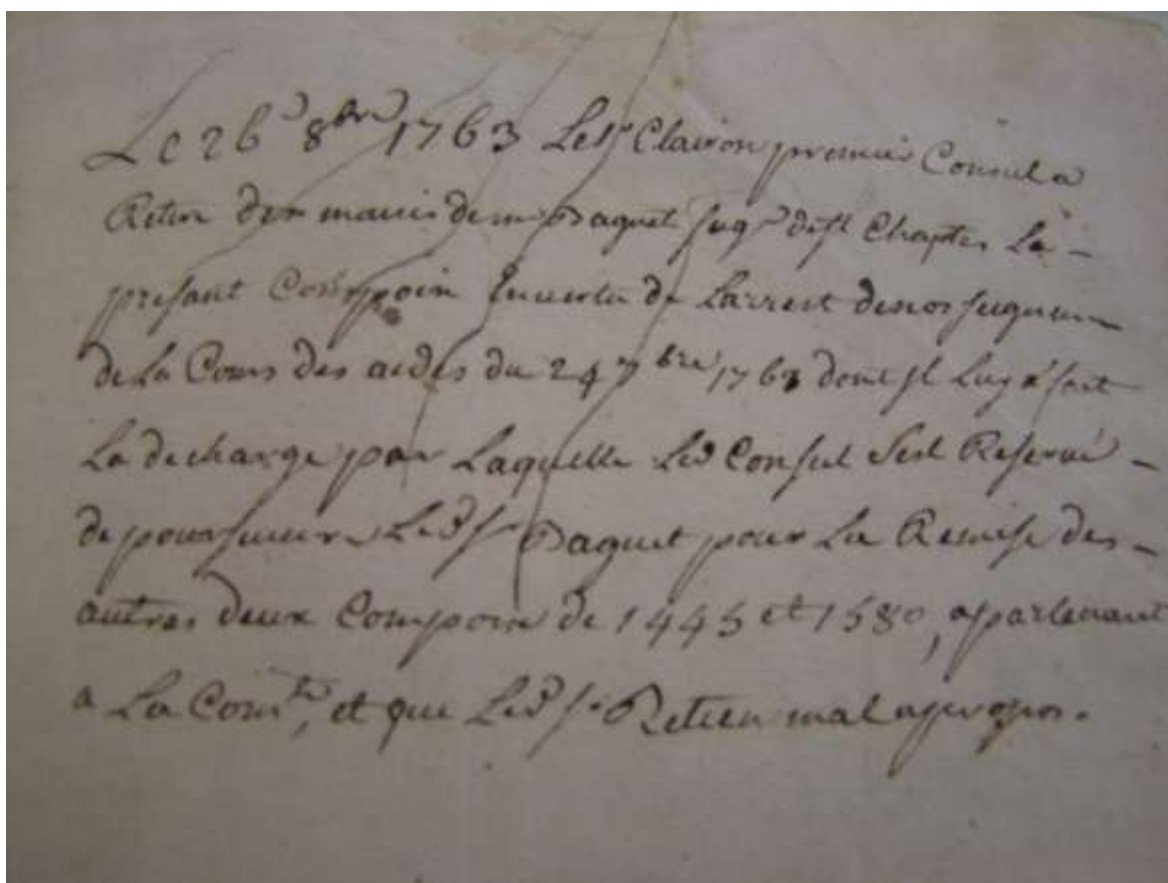 Le 26e 8bre 1763 Le Sr Clairon premier Consul a
Retiré des mains de me Daquet Le -
presant Compoix En vertu de Larrest de nos seigneurs
de La Cour des aides du 24 7bre 1763 dont il Luy a fait
La decharge par Laquelle Led Consul Sest Reservé -
de poursuivre Led Sr Daquet pour La Remise des -
autres deux Compoix de 1445 et 1580, apartenant
a La Comté, et que Led Sr Retien mal apropos.